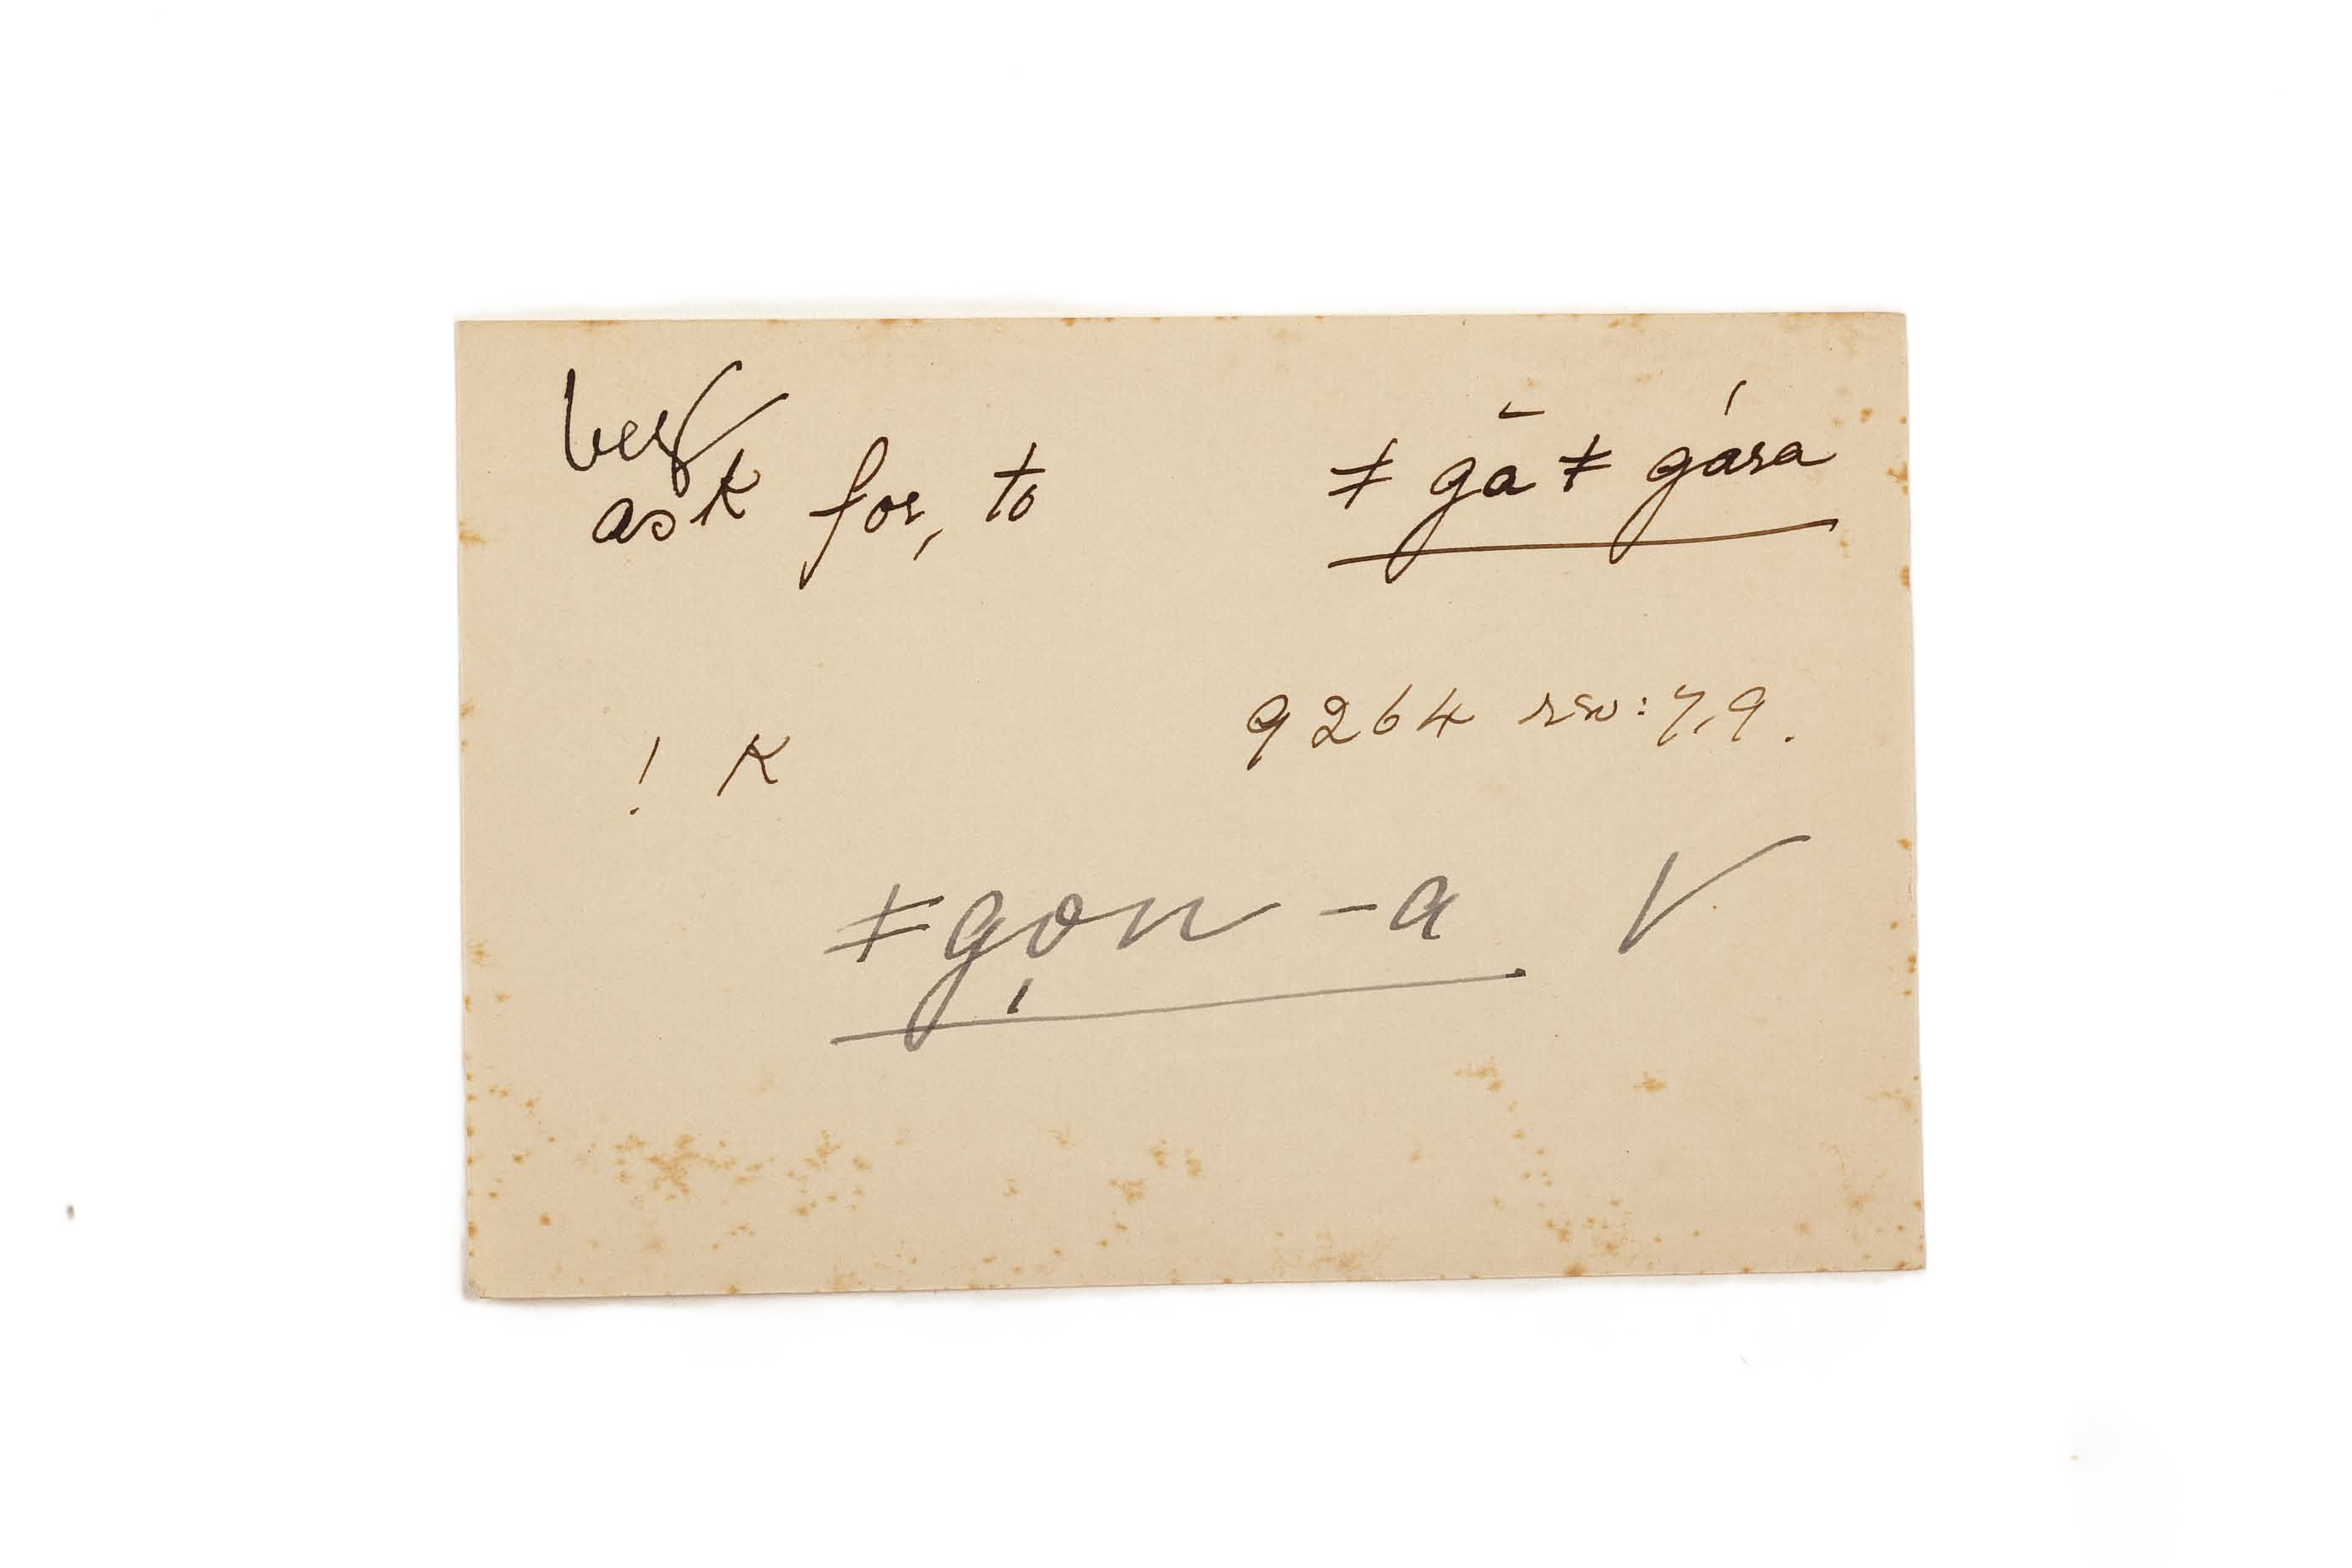 beg
ask for, to ǂ gā ǂ gára
! K 9264 rev: 7,9.
ǂgo̗n -a V